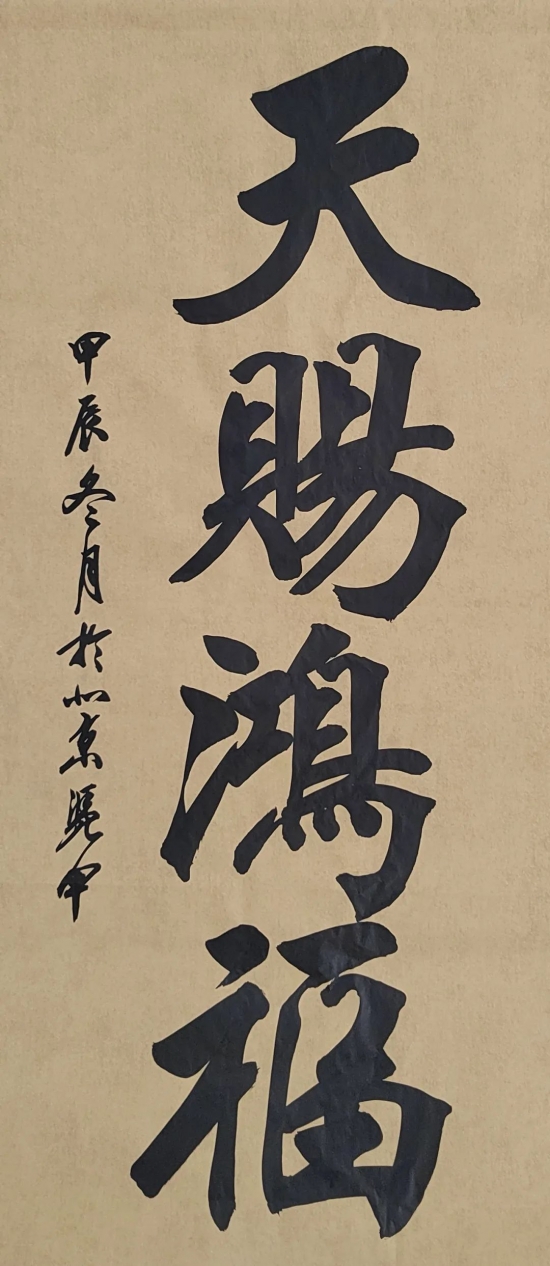 天赐鸿福
甲辰冬月於北京